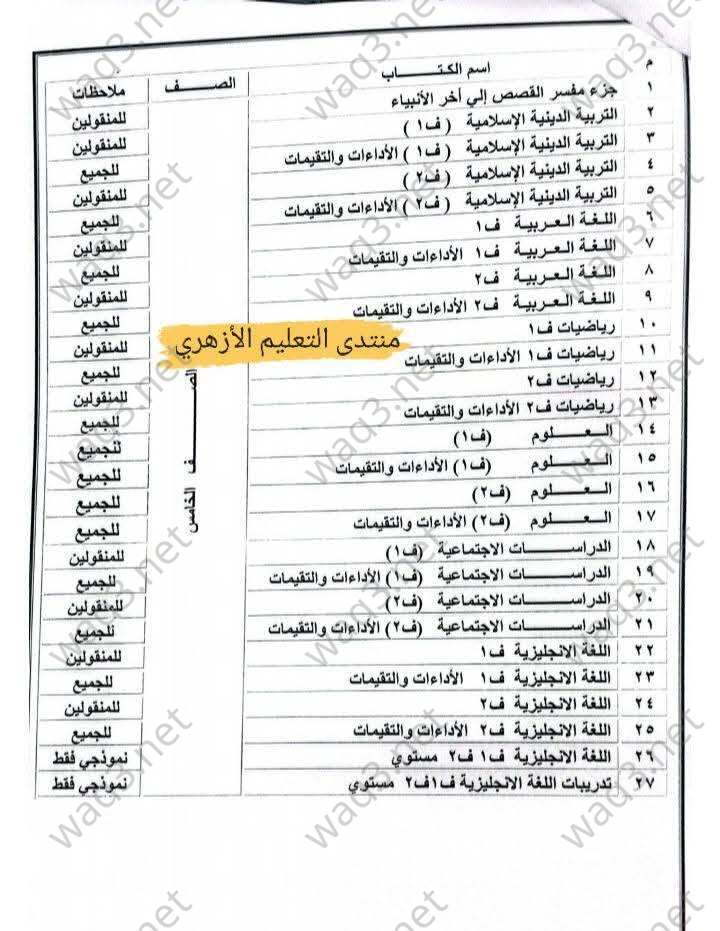 م اسم الكتـــــاب الصـــــف ملاحظات
١ جزء مفسر القصص إلي أخر الأنبياء للمنقولين
٢ التربية الدينية الإسلامية ( ف١ ) للمنقولين
٣ التربية الدينية الإسلامية ( ف١ ) الأداءات والتقيمات للجميع
٤ التربية الدينية الإسلامية ( ف٢ ) للمنقولين
٥ التربية الدينية الإسلامية ( ف٢ ) الأداءات والتقيمات للجميع
٦ اللغة العـربيـة ف١ للمنقولين
٧ اللغة العـربيـة ف١ الأداءات والتقيمات للجميع
٨ اللغة العـربيـة ف٢ للمنقولين
٩ اللغة العـربيـة ف٢ الأداءات والتقيمات للجميع
١٠ رياضيات ف١ للمنقولين
منتدى التعليم الأزهري
١١ رياضيات ف١ الأداءات والتقيمات للجميع
١٢ رياضيات ف٢ للمنقولين
١٣ رياضيات ف٢ الأداءات والتقيمات للجميع
١٤ العـــــلـــــوم (ف١) للجميع
١٥ العـــــلـــــوم (ف١) الأداءات والتقيمات للجميع
١٦ العـــــلـــــوم (ف٢) للجميع
١٧ العـــــلـــــوم (ف٢) الأداءات والتقيمات للجميع
الصـــــف الخامس
١٨ الدراســـــات الاجتماعية (ف١) للمنقولين
١٩ الدراســـــات الاجتماعية (ف١) الأداءات والتقيمات للجميع
٢٠ الدراســـــات الاجتماعية (ف٢) للمنقولين
٢١ الدراســـــات الاجتماعية (ف٢) الأداءات والتقيمات للجميع
٢٢ اللغة الانجليزية ف١ للمنقولين
٢٣ اللغة الانجليزية ف١ الأداءات والتقيمات للجميع
٢٤ اللغة الانجليزية ف٢ للمنقولين
٢٥ اللغة الانجليزية ف٢ الأداءات والتقيمات للجميع
٢٦ اللغة الانجليزية ف١ ف٢ مستوي نموذجي فقط
٢٧ تدريبات اللغة الانجليزية ف١ف٢ مستوي نموذجي فقط
waq3.net